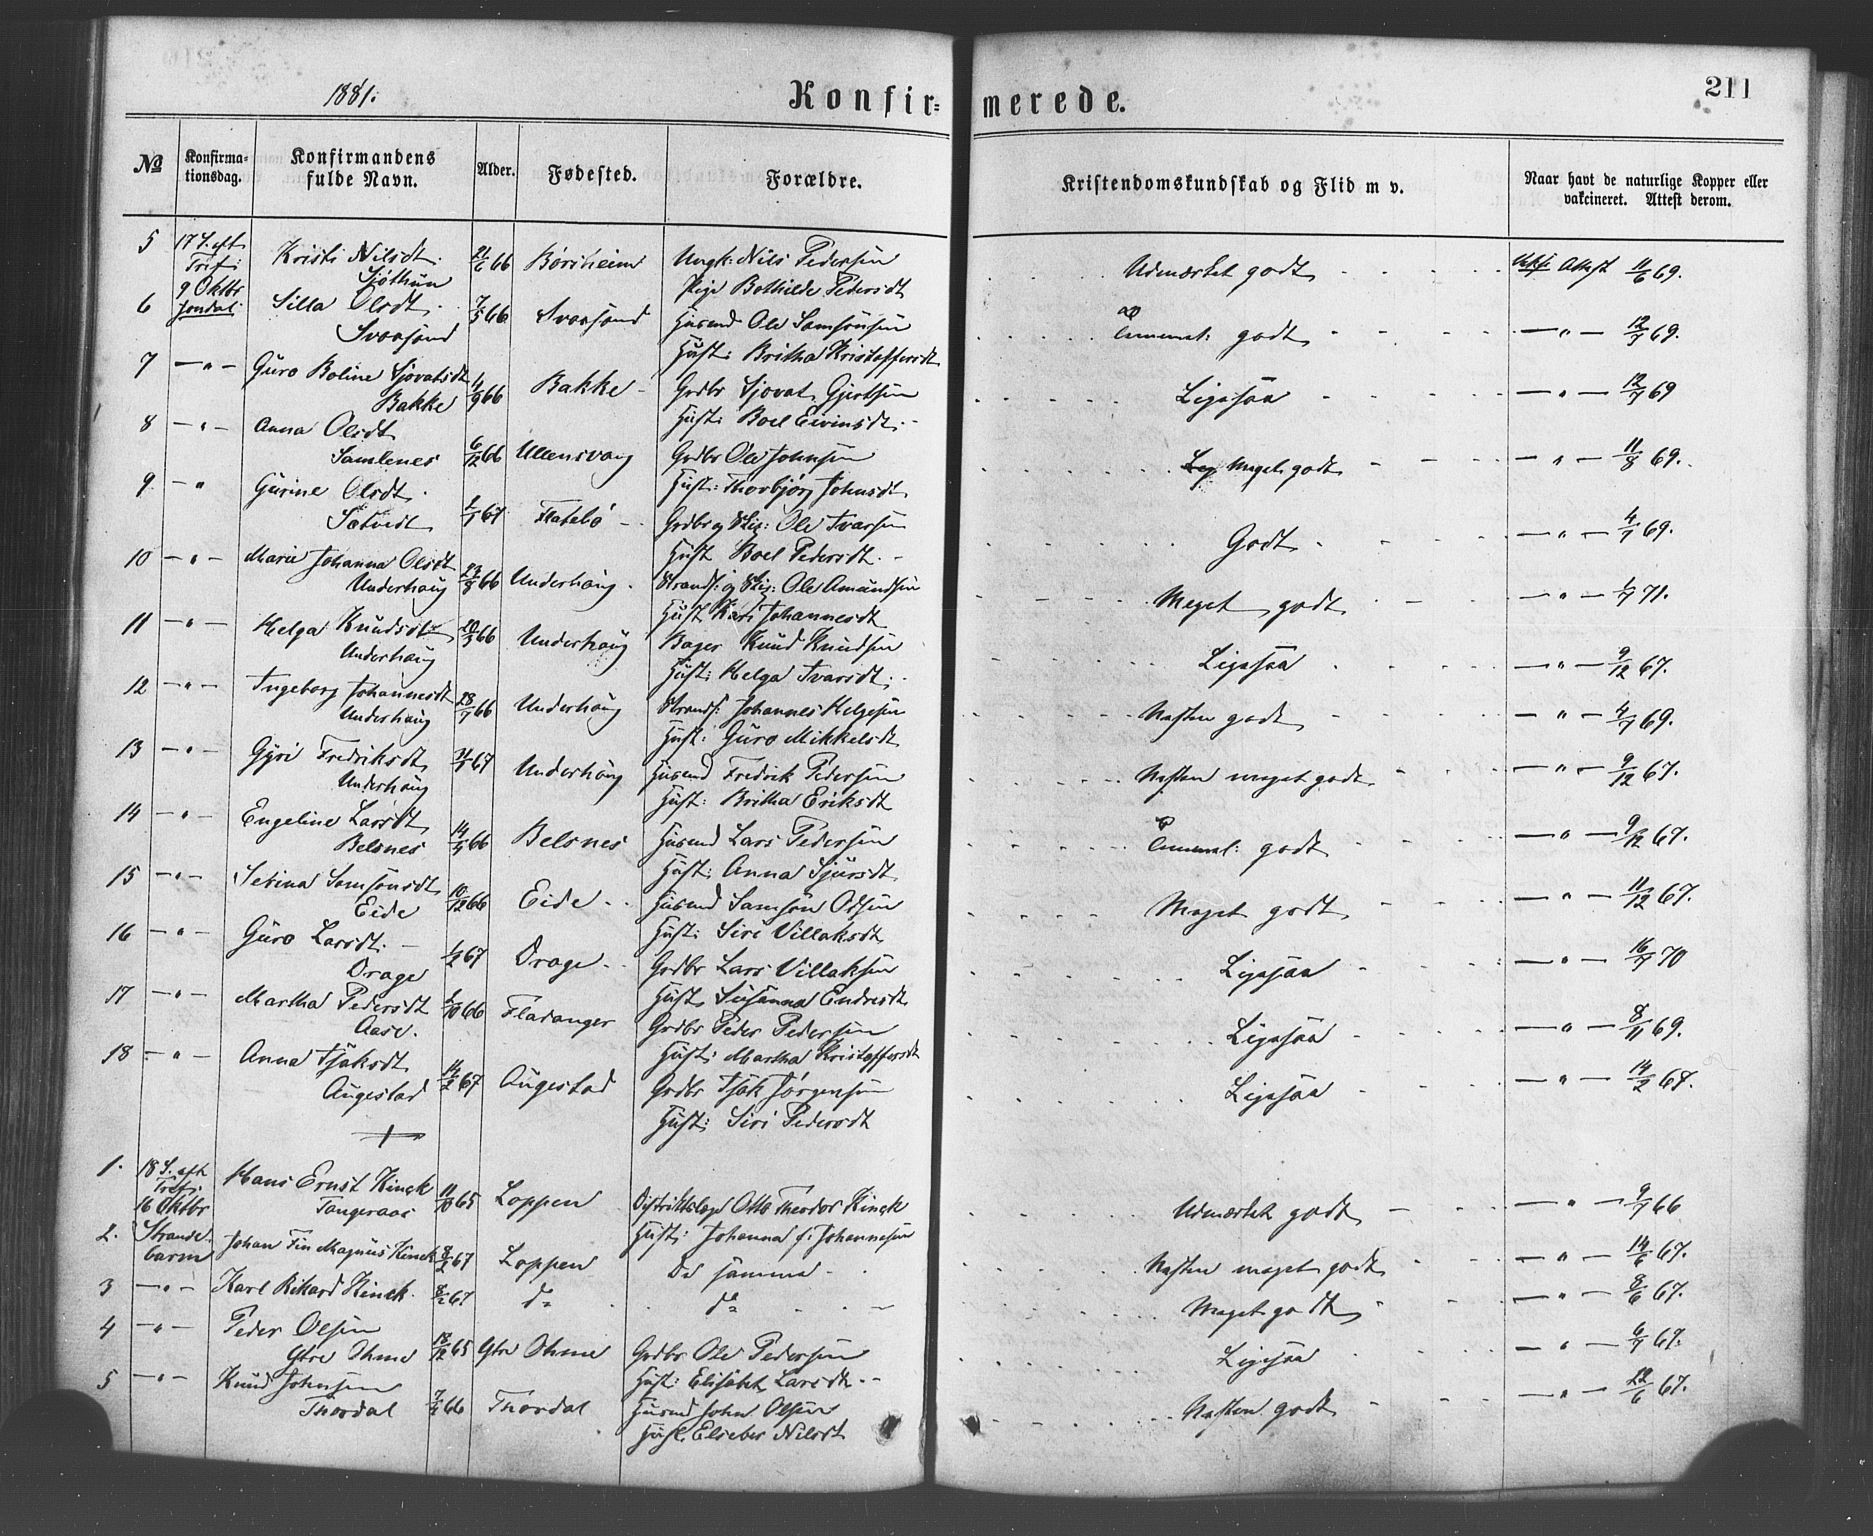 1881.
Konfir- merede.
211
No Konfirmationsdag. Konfirmandens fulde Navn. Alder. Fødested. Forældre. Kristendomskundskab og Flid m v. Naar havt de naturlige Kopper eller vakcineret. Attest derom.
5 17 S. eft Kristi Nilsdt. 21/6 66 Børsheim Ungk: Nils Pedersen Udmærket godt Attest 11/6 69.
Trif: Sjøthun Pige Bothilde Pedersdt
9 Oktbr
6 Jondal Silla Olsdt. 7/5 66 Svaasand Husmd Ole Samsonsen godt — " — 12/7 69.
Svaasand Hust: Britha Kristoffersdt
7 — " — Guro Boline Sjovatsdt 4/9 66 Bakke Grdbr Sjovat Gjertsen Ligesaa — " — 12/7 69
Bakke Hust: Boel Eivindsdt.
8 — " — Anna Olsdt 6/12 66 Ullensvang Grdbr Ole Johnsen Meget godt — " — 11/8 69.
Samlenes Hust: Thorbjør Johnsdt
9 — " Gurine Olsdt. 67 Flatebø Grdbr og Ole Ivarsen Godt — " — 4/7 69.
Sætvedt Hust Boel Pedersdt.
10 — " — Marie Johanna Olsdt 23/8 66 Underhaug Strands: og Ole Amundsen Meget godt — " — 71.
Underhaug Hust Kari Johannesdt
11 — " — Helga Knudsdt 20/3 66 Underhaug Bager Knud Knudsen Ligesaa — " — 9/12 67.
Underhaug Hust: Helga Ivarsdt.
12 — " — Ingeborg Johannesdt 28/7 66 Underhaug Strands: Johannes Helgesen Næsten godt — " — 4/7 69.
Underhaug Hust: Guro Mikkelsdt
13 — " — Gyri Fredriksdt 67 Underhaug Husmd Fredrik Pedersen Næsten meget godt — " — 9/12 67.
Underhaug Hust: Britha Eriksdt
14 — " — Engeline Larsdt 66 Belsnes Husmd Lars Pedersen godt — " — 9/12 67.
Belsnes Hust: Anna Sjursdt
15 — " — Serina Samsonsdt 10/12 66 Eide Husmd Samson Odsen Meget godt — " — 11/12 67.
Eide Hust: Siri Villaksdt
16 — " — Guro Larsdt. 1/2 67 Drage Grdbr Lars Villaksen Ligesaa — " — 16/7 70
Drage Hust: Susanna Endresdt
17 — " — Martha Pedersdt 66 Fladanger Grdbr Peder Pedersen Ligesaa — " — 8/11 69.
Aase. Hust: Martha Kristoffersdt
18 — " Anna Isaksdt 14/2 67 Augestad Grdbr Isak Jørgensen Ligesaa — " — 14/2 68.
Augestad Hust: Siri Pedersdt
1. 18 S. eft Hans Ernst Kinck 11/10 65 Loppen Distriktslæge Otto Theodor Kinck Udmærket godt — " — 9/7 66
Tref: Tangeraas Hust: Johanna f: Johannesen
16 Oktbr
2. Strandebarm Johan Fin Magnus Kinck 8/2 67 Loppen De samme Næsten meget godt — " — 14/6 67.
3 — " — Karl Rikard Kinck 8/2 67 do do Meget godt — " — 8/6 67.
4 — " — Peder Olsen 18/12 65 Ytre Ohme Grdbr Ole Pedersen Ligesaa — " — 6/7 67.
Ytre Ohme Hust: Elisabet Larsdt
5 — " — Knud Johnsen 66 Thordal Husmd John Olsen Næsten godt — " — 22/6 67.
Thordal Hust. Elseber Nilsdt